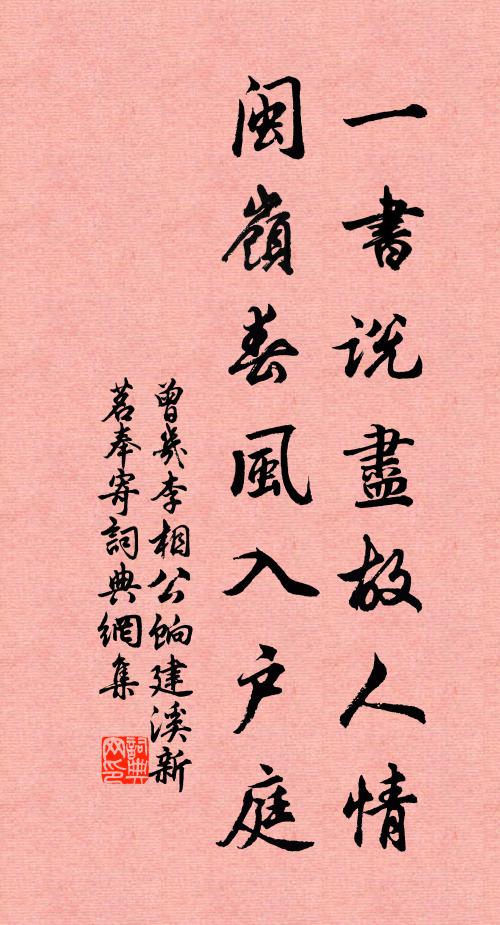 一書説盡故人情
閩嶺春風入户庭
曾幾李相公餉建溪新
茗奉寄詞典網集
詞典
网印